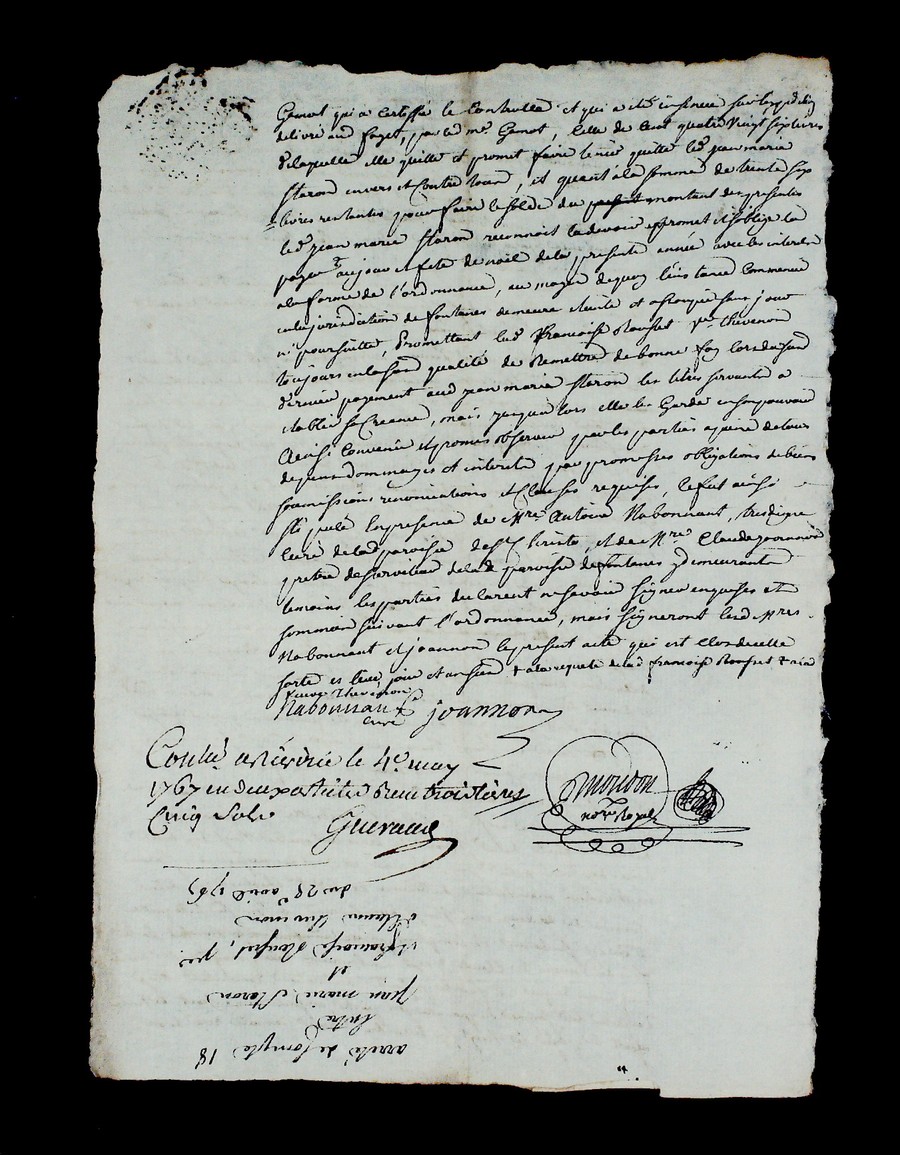 Gemot qui a Certiffié le Controlle et qui a été insinué sur l'expedion
delivré aud , par led me Gemot, Celle de Cent quatre Vingt sept livres
De laquelle elle quitte et promet faire tenir quitte led jean marie
staron envers et Contre tous, et quant a la somme de trente six
livres restantes pour faire le solde du montant des presentes
led jean marie staron reconnoit la devoir et promet et s'oblige la
payer au jour et fete de noel de la presente année avec les interets
a la forme de l'ordonnance, au moyen de quoy l'instance Commencée
en la jurisdiction de fontanes demeure eteinte et assoupie sans jour
ni poursuitte, Promettant lad françoise Rouset ve thevenon
toujours en lad qualité de Remettre de bonne foy lors du susd
dernier payement aud jean marie staron les titres servants a
etablir sa Creance, mais jusqu'a lors elle les Garde en son pouvoir
Ainsi Convenu et promis observer par les parties a peine de tous
depens dommages et interets par promesses obligations de biens
soumissions renonciations et Clauses requises, le fut ainsi
stipulé En presence de Mre Antoine Nabonnant, tres digne
Curé de lad parroisse de St Christo, et de Mre Claude joannon
pretre desserviteur de lad parroisse de fontanes y demeurants
temoins les parties declarent ne sçavoir signer enquises et
sommées suivant l'ordonnance, mais signeront lesd Mres
Nabonnant et joannon le present acte qui est Clos de cette
sorte es lieu, jour et an susd + a la requete de lad françoise Rousset + aud
feu thevenon
Nabonnan Curé joannon
Conlé a St le 4e may
1767 en deux articles Reçu trois livres
Cinq Sols
Gueraud
Mondon
nore Royal
arreté de Compte 18
Entre
jean marie Staron
et
françoise Rouset, ve
Etienne thevenon
du 28e avril 1767